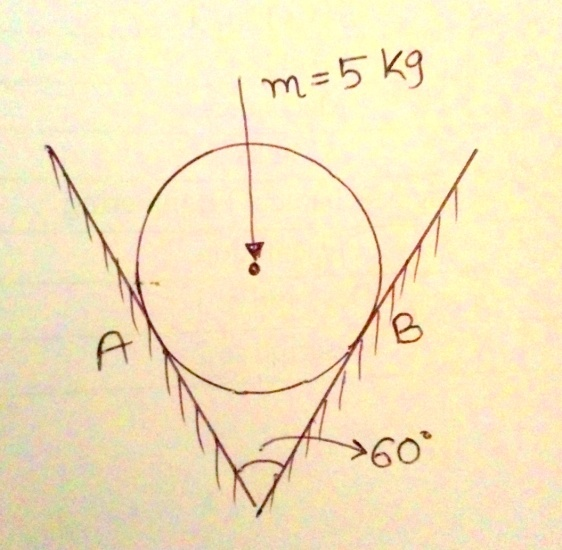 m = 5 kg
A
B
60°